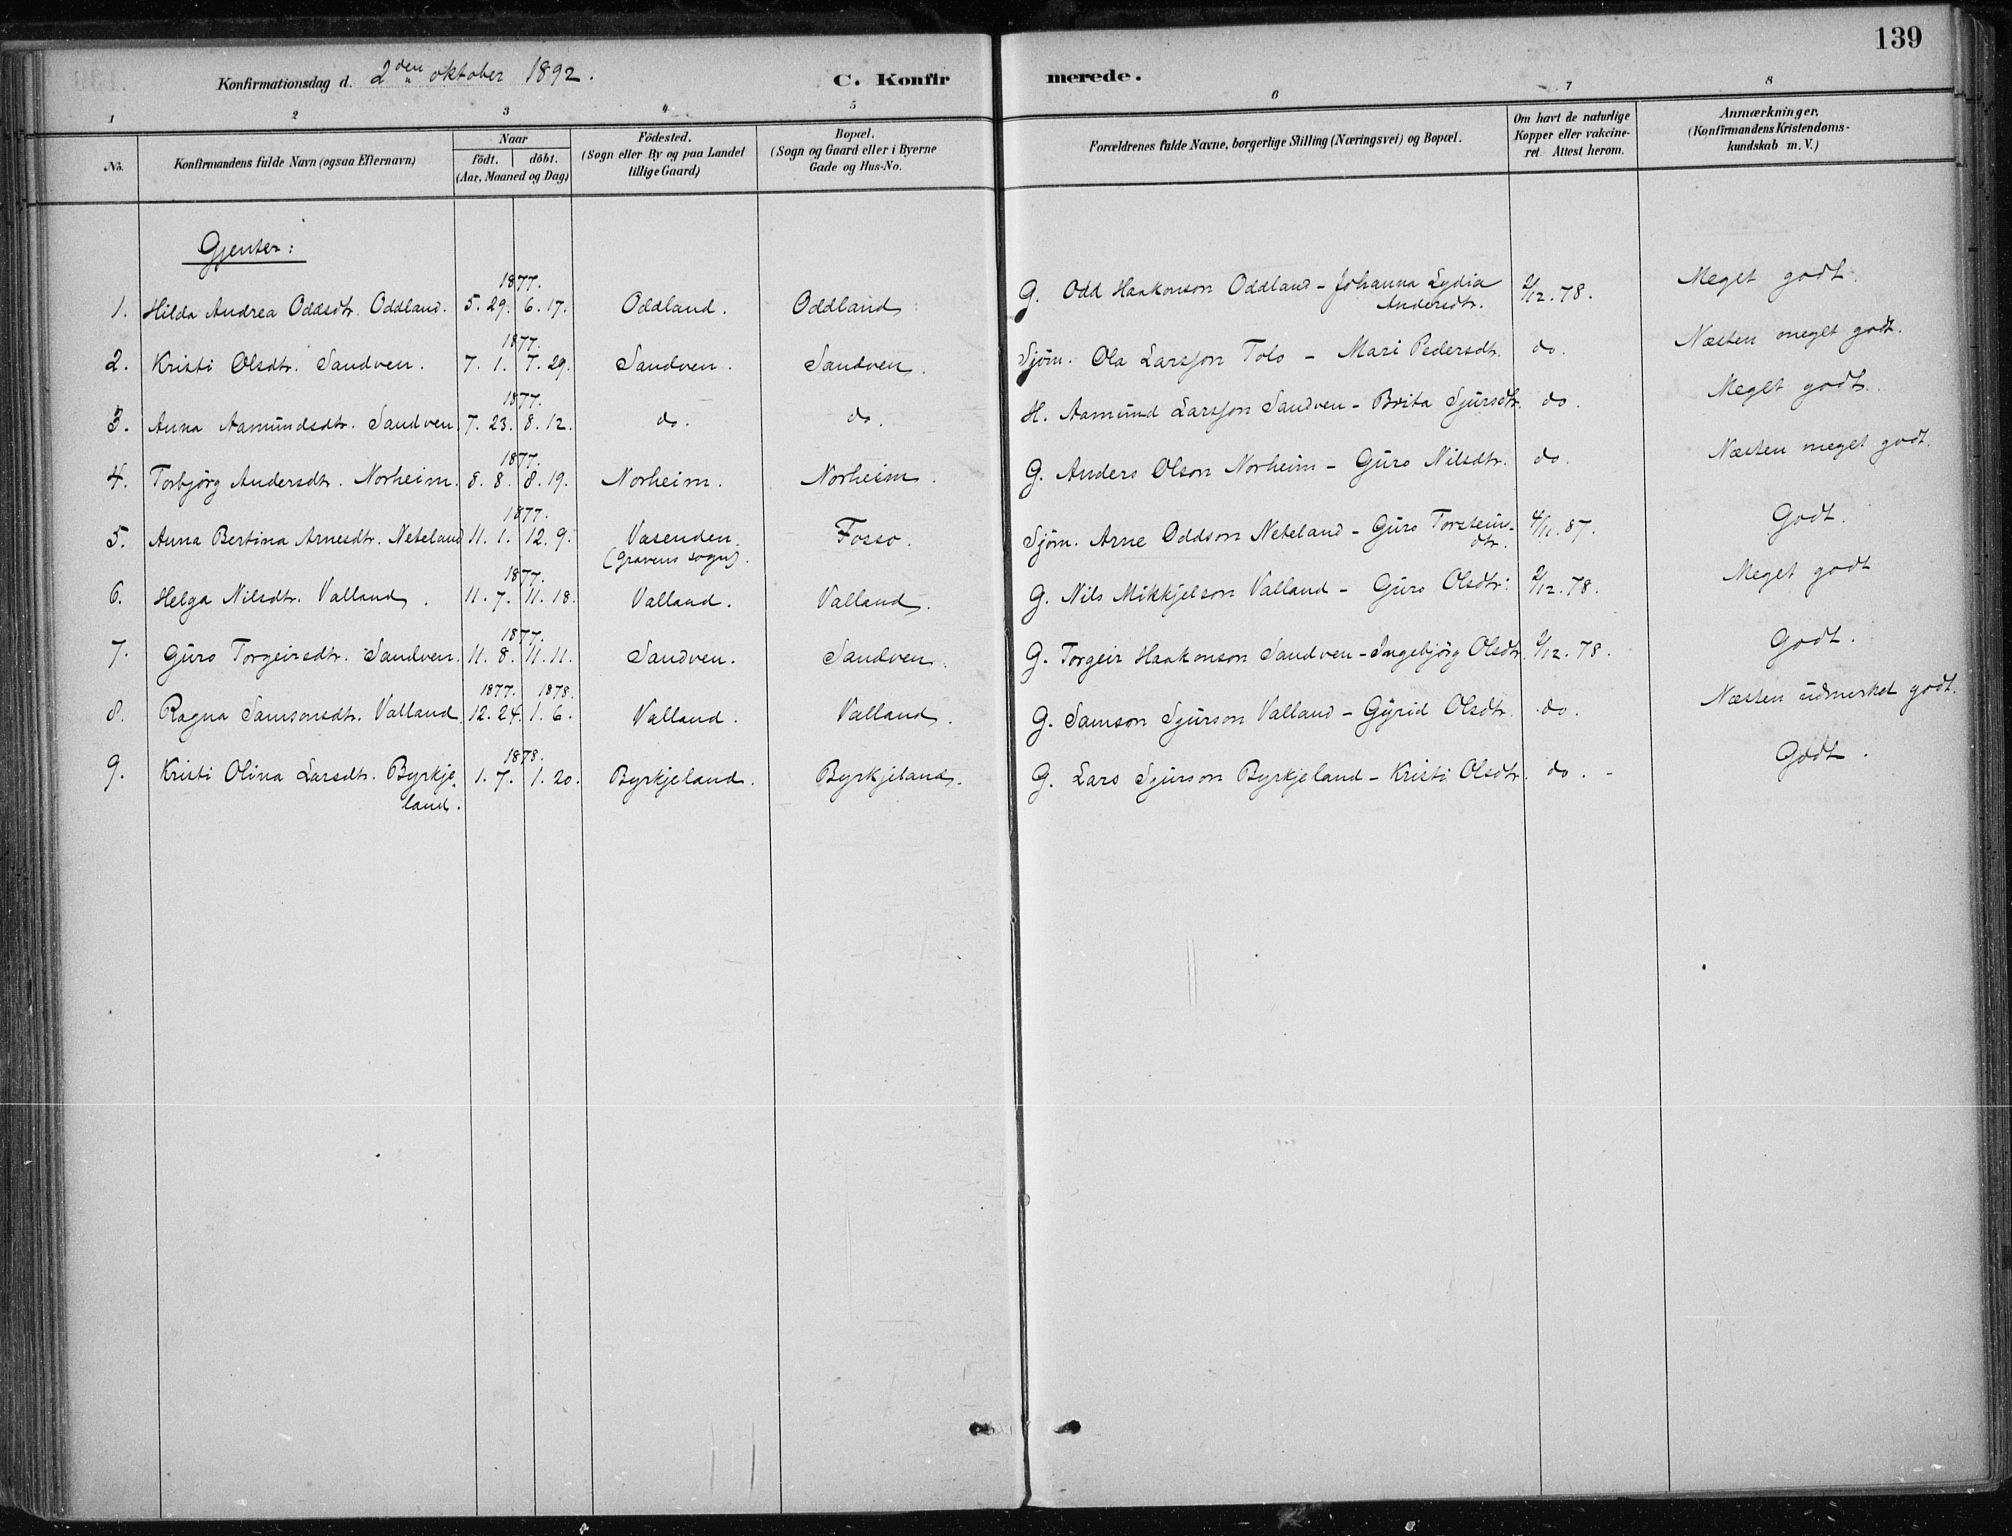 139
Konfirmationsdag d. 2den oktober 1892.
C. Konfirmerede.
1 2 3 4 5 6 7 8
No.
Konfirmandens fulde Navn (ogsaa Efternavn)
Naar
födt. döbt.
(Aar, Maaned og Dag)
Födested.
(Sogn eller By og paa Landet
tillige Gaard)
Bopæl.
(Sogn og Gaard eller i Byerne
Gade og Hus-No.
Forældrenes fulde Navne, borgerlige Stilling (Næringsvei) og Bopæl.
Om havt de naturlige
Kopper eller vakcine-
ret Attest herom.
Anmærkninger.
(Konfirmandens Kristendoms-
kundskab m. V.)
Gjenter:
1877.
1. Hilda Andrea Oddsdtr. Oddland. 5. 29. 6. 17. Oddland. Oddland. G. Odd Haakonson Oddland - Johanna Lydia 2/12. 78. Meget godt.
Andersdtr.
1877.
2. Kristi Olsdtr. Sandven. 7. 1. 7. 29. Sandven. Sandven. Sjøm. Ola Larsson Tolo - Mari Pedersdtr. do. Næsten meget godt.
1877.
3. Anna Aamundsdtr. Sandven. 7. 23. 8. 12. do. do. H. Aamund Larsson Sandven - Brita Sjursdtr. do. Meget godt.
1877.
4. Torbjörg Andersdtr. Norheim. 8. 8. 8. 19. Norheim. Norheim. G. Anders Olson Norheim - Guro Nilsdtr. do. Næsten meget godt.
1877.
5. Anna Bertina Arnesdtr. Neteland 11. 1. 12. 9. Vasenden. Fosso. Sjøm. Arne Oddson Neteland - Guro Torsteins- 4/11. 87. Godt.
(Gravens sogn). dtr.
1877.
6. Helga Nilsdtr. Valland. 11. 7. 11. 18. Valland. Valland. G. Nils Mikkjelson Valland - Guro Olsdtr. 2/12. 78. Meget godt
1877.
7. Guro Torgeirsdtr. Sandven. 11. 8. 11. 11. Sandven. Sandven. G. Torgeir Haakonson Sandven - Ingebjörg Olsdtr. 2/12. 78. Godt.
1877. 1878.
8. Ragna Samsonsdtr. Valland. 12. 24. 1. 6. Valland. Valland. G. Samson Sjurson Valland - Gyrid Olsdtr. do. Næsten udmerket godt.
1878.
9. Kristi Olina Larsdtr. Byrkje- 1. 7. 1. 20. Byrkjeland. Byrkjeland. G. Lars Sjurson Byrkjeland - Kristi Olsdtr. do. - Godt.
land.